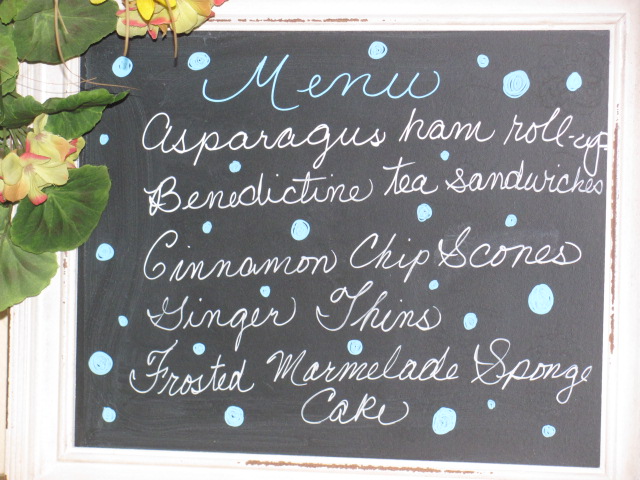 Menu
Asparagus ham roll-ups
Benedictine tea sandwiches
Cinnamon Chip Scones
Ginger Thins
Frosted Marmelade Sponge
Cake